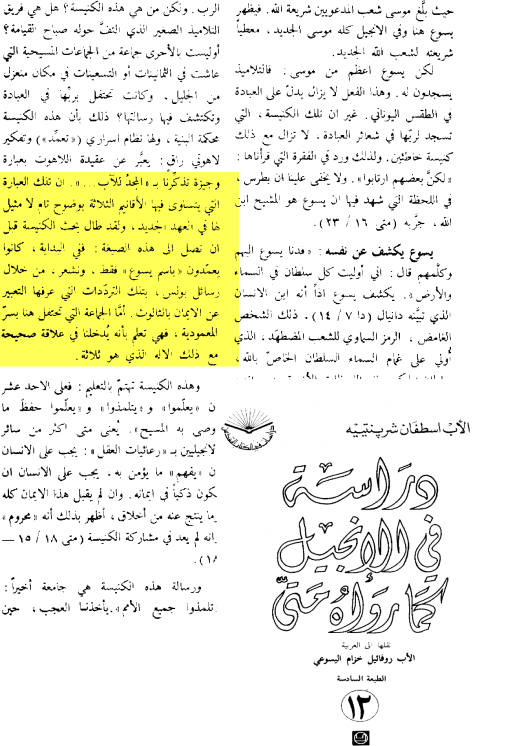 حيث بلَّغ موسى شعب المدعويين شريعة الله. فيظهر
يسوع هنا وفي الانجيل كله موسى الجديد، معطياً
شريعته لشعب الله الجديد.
لكن يسوع اعظم من موسى: فالتلاميذ
يسجدون له. وهذا الفعل لا يزال يدلّ على العبادة
في الطقس اليوناني. غير ان تلك الكنيسة، التي
تسجد لربّها في شعائر العبادة، لا تزال مع ذلك
كنيسة خاطئين. ولذلك ورد في الفقرة التي قرأناها:
«لكنّ بعضهم ارتابوا». ولا يخفى علينا ان بطرس،
في اللحظة التي شهد فيها ان يسوع هو المسيح ابن
الله، جرَّبه (متى ١٦ / ٢٣).
يسوع يكشف عن نفسه: «فدنا يسوع اليهم
وكلَّمهم قال: اني أوليت كل سلطان في السماء
والأرض». يكشف يسوع اذاً أنه ابن الانسان
الذي تبيَّنه دانيال (دا ٧ / ١٤). ذلك الشخص
الغامض، الرمز السماوي للشعب المضطهَد، الذي
أُولي على غمام السماء السلطان الخاصّ بالله،
الرب. ولكن من هي هذه الكنيسة؟ هل هي فريق
التلاميذ الصغير الذي التفَّ حوله صباح القيامة؟
أوليست بالأحرى جماعة من الجماعات المسيحية التي
عاشت في الثمانينات أو التسعينات في مكان منعزل
من الجليل، وكانت تحتفل بربّها في العبادة
وتكتشف فيها رسالتها؟ ذلك بأن هذه الكنيسة
محكمة البنية، ولها نظام اسراري («تعمّد») وتفكير
لاهوتي راقٍ: يعبَّر عن عقيدة اللاهوت بعبارة
وجيزة تذكّرنا بـ «المجدُ للآب...». ان تلك العبارة
التي يتساوى فيها الأقانيم الثلاثة بوضوح تام لا مثيل
لها في العهد الجديد، ولقد طال بحث الكنيسة قبل
ان نصل الى هذه الصيغة: ففي البداية، كانوا
يعمّدون «باسم يسوع» فقط، ونشعر، من خلال
رسائل بولس، بتلك التردّدات التي عرفها التعبير
عن الايمان بالثالوث. أمَّا الجماعة التي تحتفل هنا بسرّ
المعمودية، فهي تعلم بأنه يُدخلنا في علاقة صحيحة
مع ذلك الاله الذي هو ثلاثة.
وهذه الكنيسة تهتمّ بالتعليم: فعلى الاحد عشر
ن «يعلّموا» و «يتلمذوا» و «يعلّموا حفظَ ما
وصى به المسيح». يُعنى متى اكثر من سائر
لانجيليين بـ «رعائيات العقل»: يجب على الانسان
ن «يفهم» ما يؤمن به، يجب على الانسان ان
كون ذكياً في ايمانه. وان لم يقبل هذا الايمان كله
ما ينتج عنه من أخلاق، أظهر بذلك أنه «محروم»
انه لم يعد في مشاركة الكنيسة (متى ١٨ / ١٥ —
١٨).
ورسالة هذه الكنيسة هي جامعة أخيراً:
تلمذوا جميع الأمم». يأخذنا العجب، حين
الأب اسطفان شربنتييه
دراسة
في الإنجيل
كما رواه متى
نقلها الى العربية
الأب روفائيل خزام اليسوعي
الطبعة السادسة
١٢